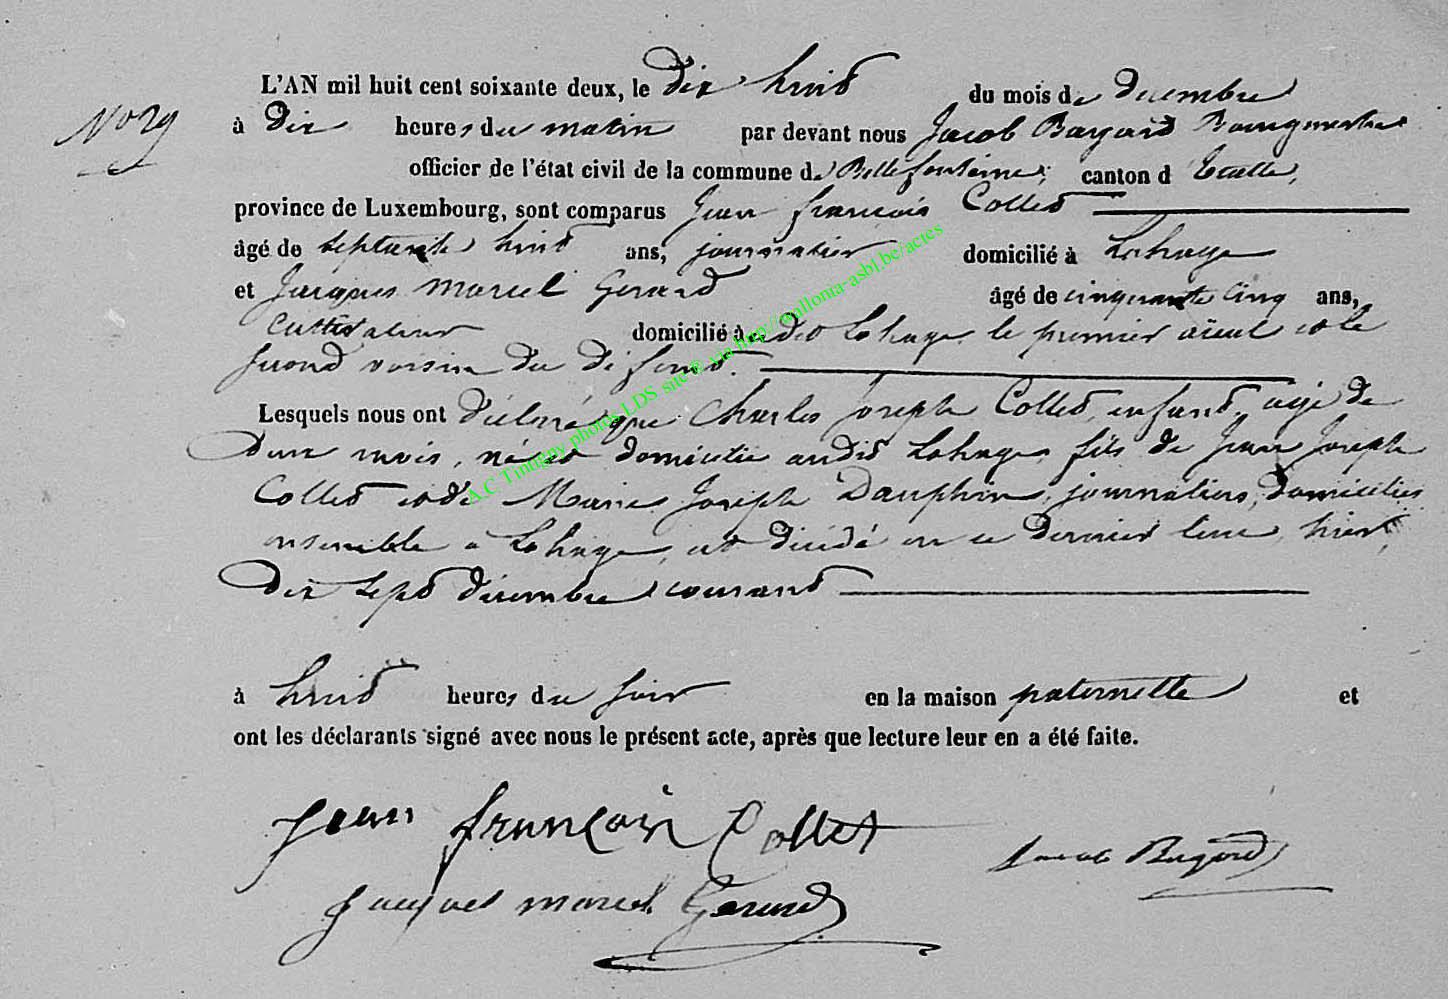 L'AN mil huit cent soixante deux, le dix huit du mois de décembre
No 29
à dix heures du matin par devant nous Jacob Bayard Bourgmestre
officier de l'état civil de la commune de Bellefontaine, canton d'Etalle,
province de Luxembourg, sont comparus Jean françois Collet
âgé de septante huit ans, journalier domicilié à Lahage
et Jacques Marcel Gerard âgé de cinquante cinq ans,
Cultivateur domicilié à dit Lahage, le premier aïeul et le
second voisin du défunt.
Lesquels nous ont déclaré que Charles Joseph Collet, enfant, âgé de
d'un mois, né et domicilié audit Lahage, fils de Jean Joseph
Collet et de Marie Joseph Dauphin, journaliers, domiciliés
ensemble à Lahage, est décédé en ce dernier lieu, hier,
dix sept décembre courant
à huit heures du soir en la maison paternelle et
ont les déclarants signé avec nous le présent acte, après que lecture leur en a été faite.
Jean françois Collet
Jacob Bayard
Jacques marcel Gerard
A.C Tintigny photos LDS sne® via http://wallonia-asbl.be/actes